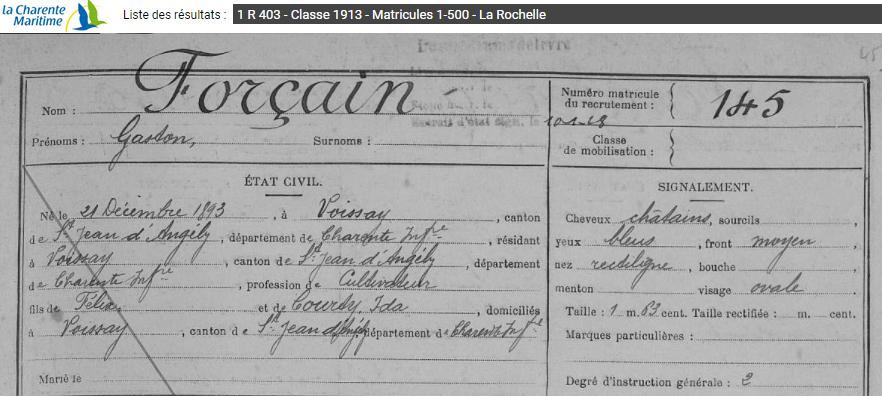 la Charente
Maritime
Liste des résultats :
1 R 403 - Classe 1913 - Matricules 1-500 - La Rochelle
Nom : Forçain
Prénoms : Gaston, Surnoms :
Numéro matricule
du recrutement : 145
Classe
de mobilisation :
ÉTAT CIVIL.
Né le 21 Décembre 1893, à Voissay, canton
de St Jean d'Angély, département de Charente Infre, résidant
à Voissay, canton de St Jean d'Angély, département
de Charente Infre, profession de Cultivateur
fils de Félix et de Courdy, Ida, domiciliés
à Voissay, canton de St Jean d'Angély département de Charente Infre
Marié le
SIGNALEMENT.
Cheveux châtains, sourcils
yeux bleus, front moyen
nez rectiligne, bouche
menton visage ovale
Taille : 1 m. 63 cent. Taille rectifiée : m. cent.
Marques particulières :
Degré d'instruction générale : 2